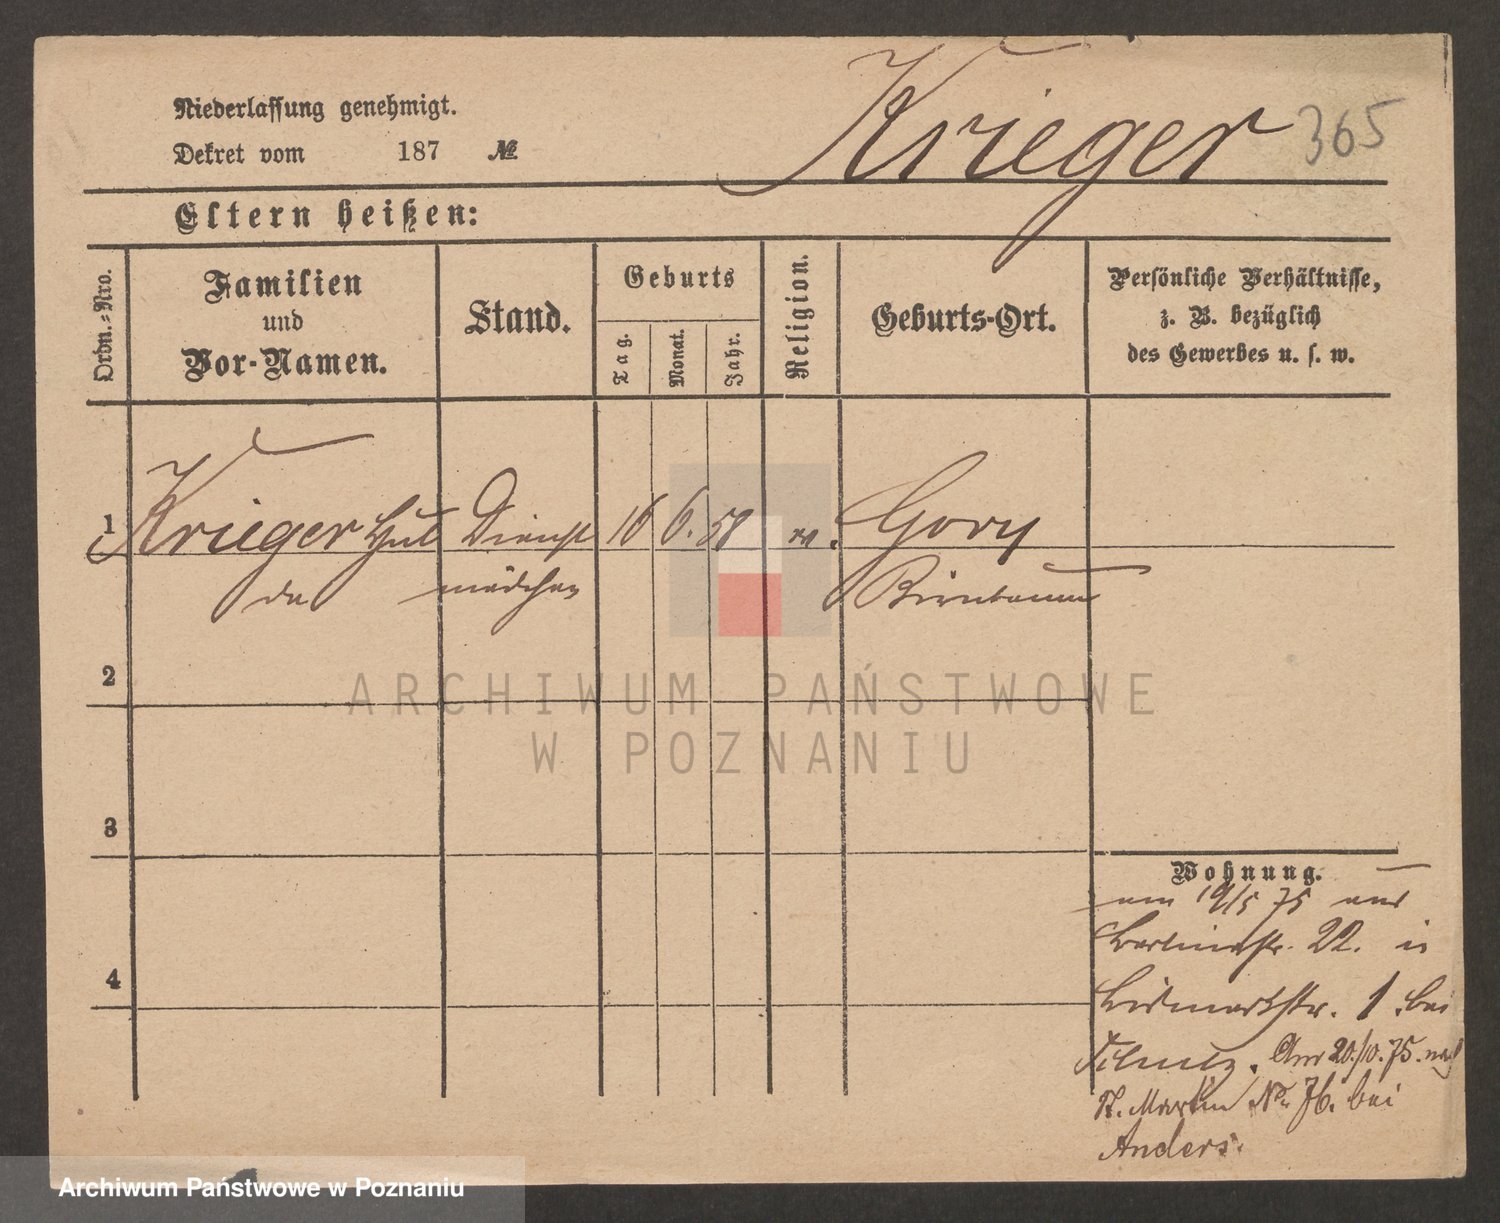 Krieger 365
Niederlassung genehmigt.
Dekret vom 187 №
Eltern heißen:
Ordn.-Nro.
Familien
und
Vor-Namen.
Stand.
Geburts
Tag.
Monat.
Jahr.
Religion.
Geburts-Ort.
Persönliche Verhältnisse,
z. B. bezüglich
des Gewerbes u. s. w.
1 Krieger Hul Dienst 16 6. 58 Gory
da mädchen Birnbaum
2
3
4
Wohnung.
am 19/5 75 aus
22. in
Bismarkstr. 1 bei
Am 20/10. 75. nach
St. Martin No 76. bei
Anders.
ARCHIWUM PAŃSTWOWE
W POZNANIU
Archiwum Państwowe w Poznaniu